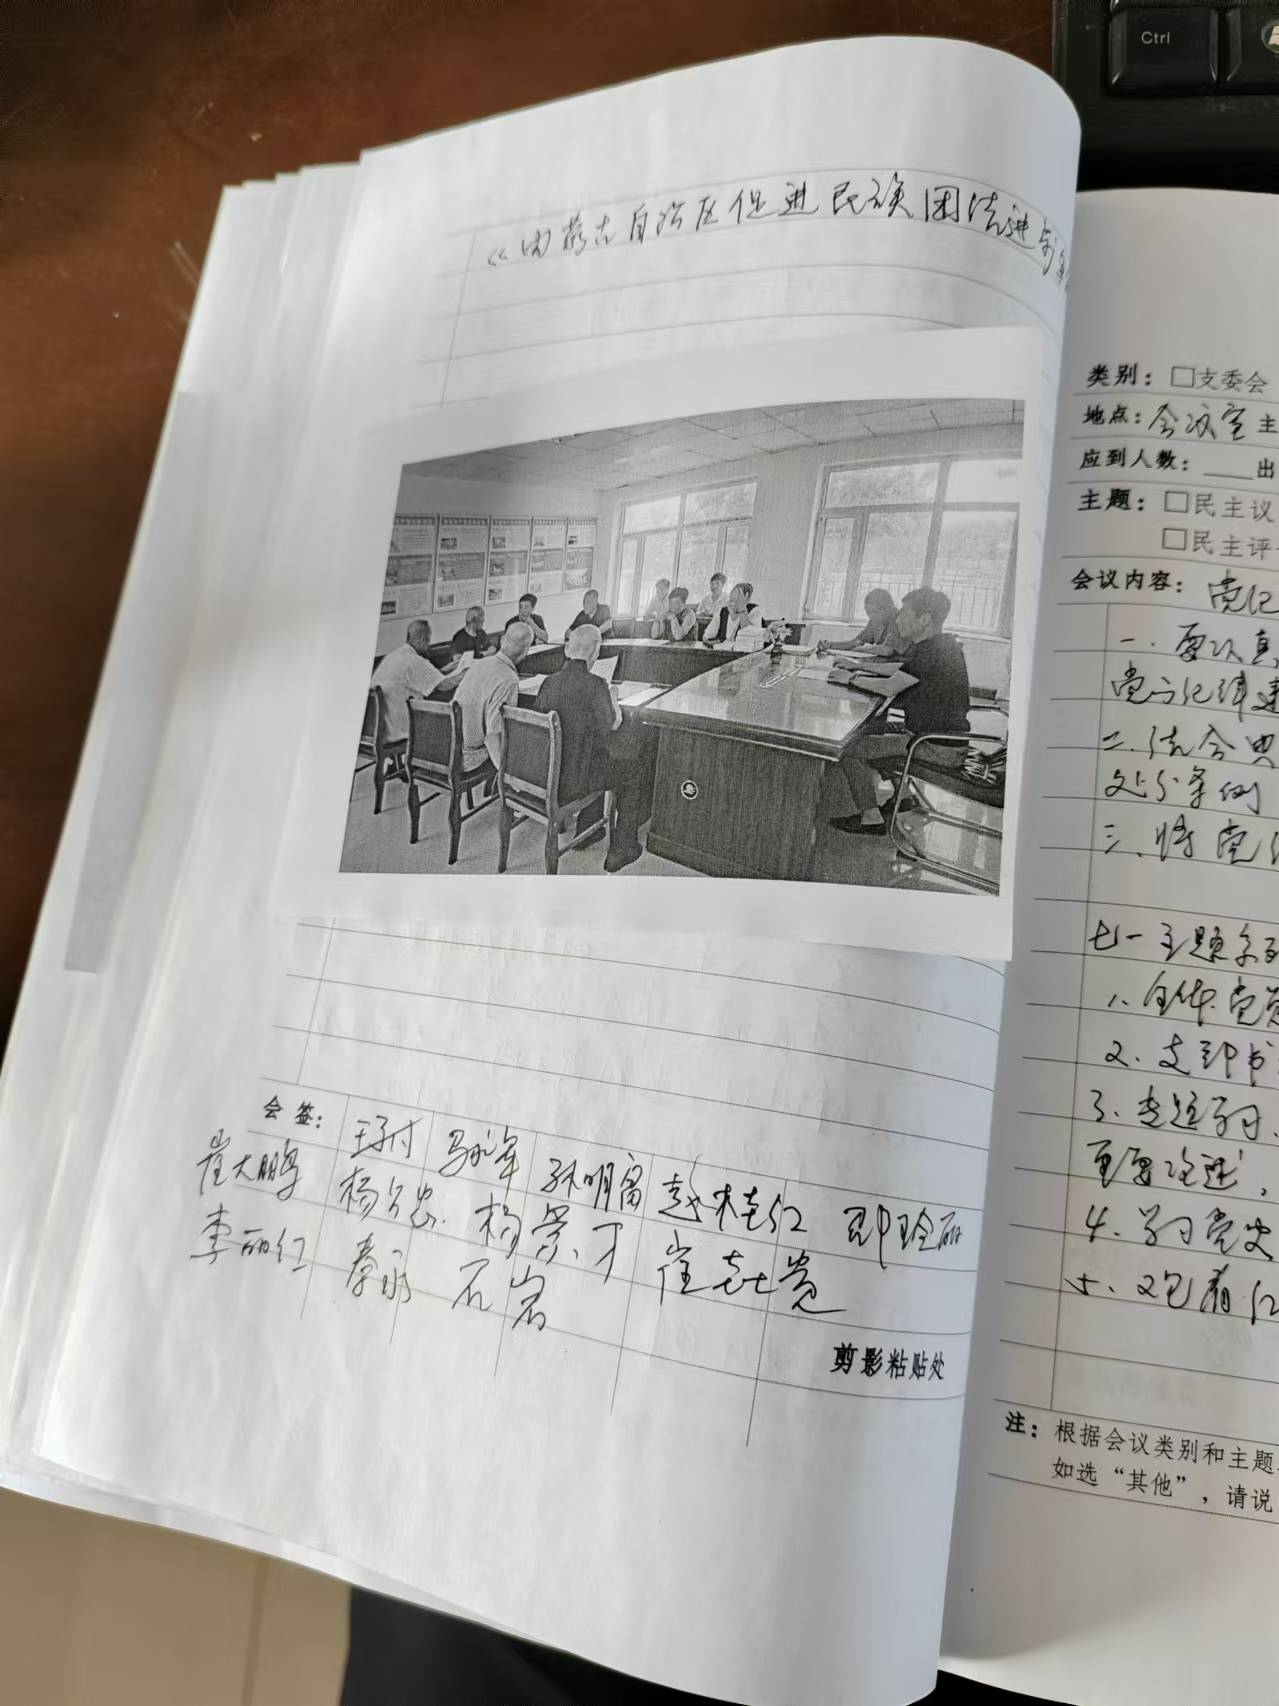 《内蒙古自治区促进民族团结进步
会签：
崔大鹏 杨 杨景才 赵桂红
李丽红 秦永 石岩 崔志贵
孙明富
剪影粘贴处
类别：□支委会
地点：会议室 主
应到人数：____出
主题：□民主议
□民主评
会议内容：党纪
一.要认真
党的纪律建
二.结合典
处分条例
三、将党
七一主题
1、全体党员
2、支部书
3、专题学习、
重要论述，
4、学习党史
5、
注：根据会议类别和主题
如选“其他”，请说
Ctrl